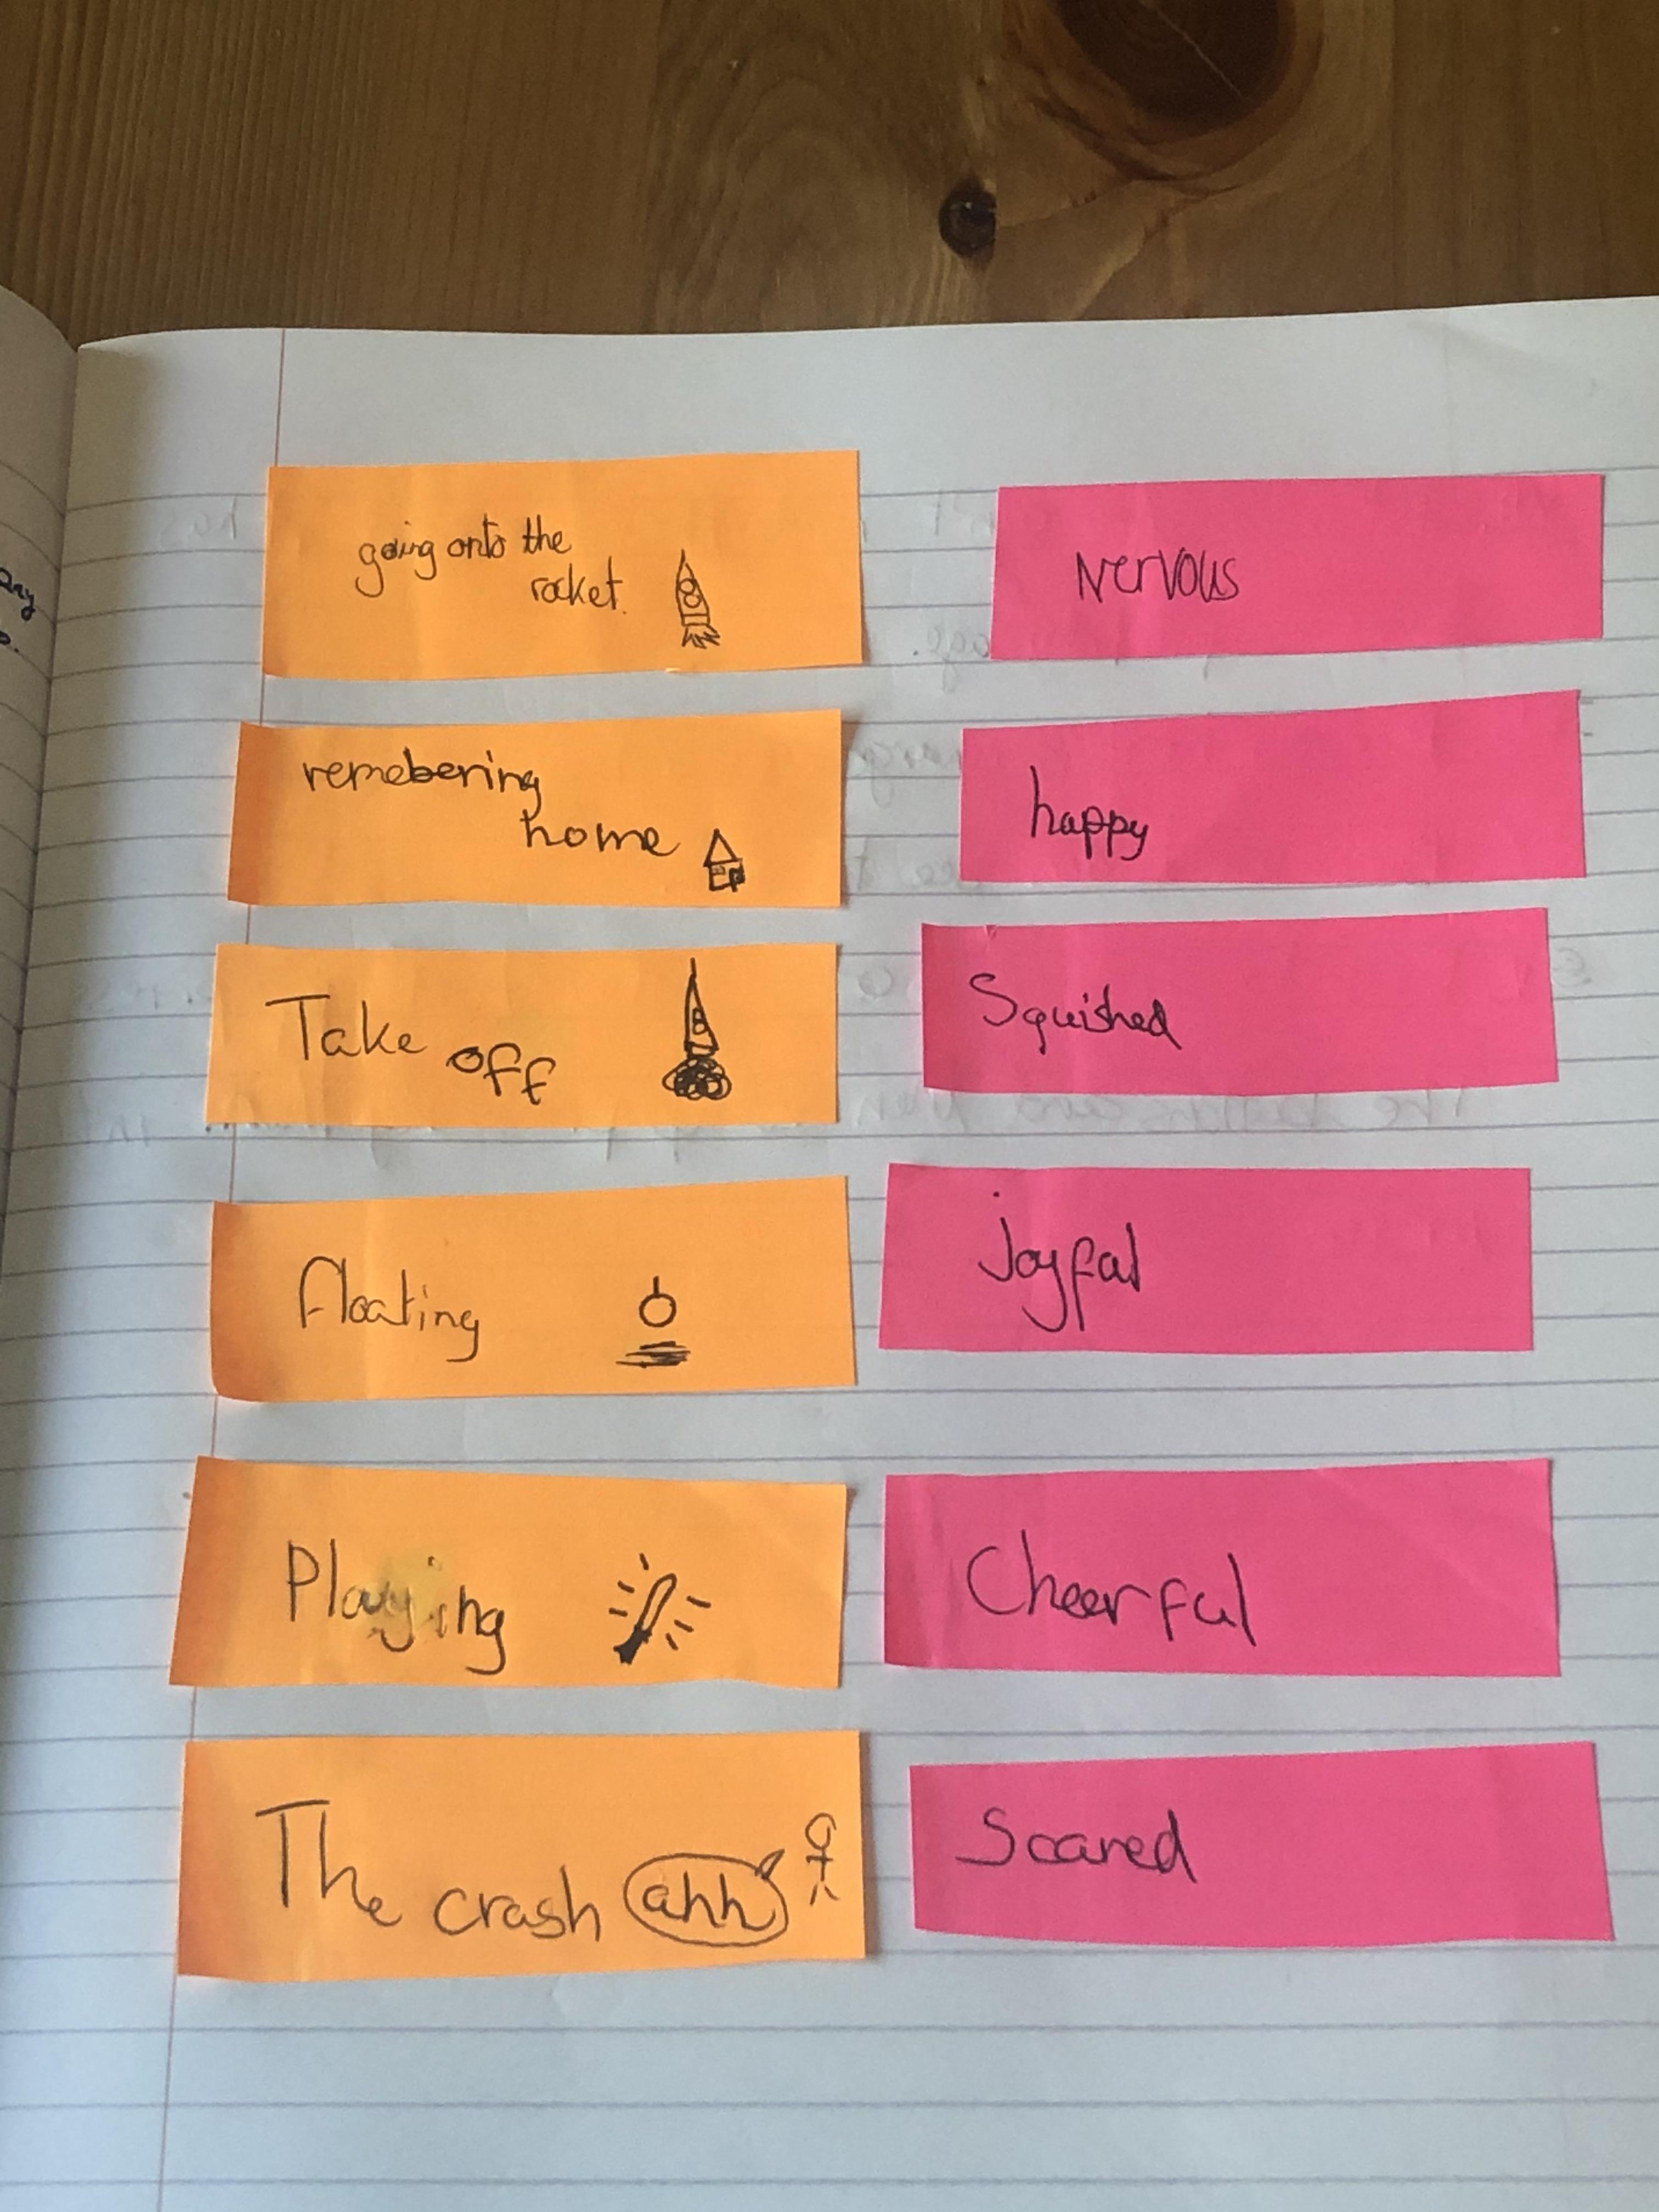 going onto the
rocket.
Nervous
remebering
home
happy
Take off
Squished
floating
joyful
Playing
Cheerful
The crash ahh
Scared